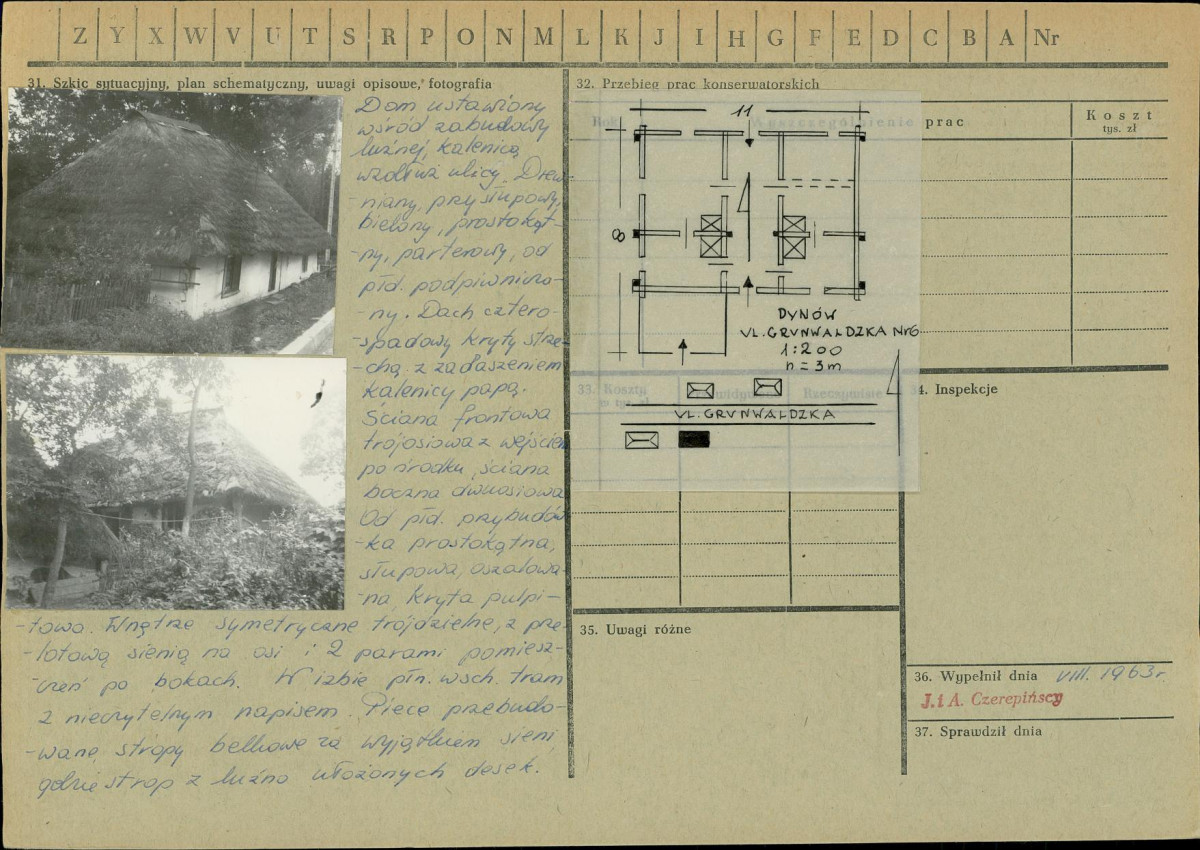 Z Y X W V U T S R P O N M L K J I H G F E D C B A Nr
31. Szkic sytuacyjny, plan schematyczny, uwagi opisowe, fotografia
Dom ustawiony
wśród zabudowy
luźnej, kalenicą
wzdłuż ulicy. Drew-
-niany, przysłupowy,
bielony, prostokąt-
-ny, parterowy, od
płd. podpiwniczo-
-ny. Dach cztero-
-spadowy kryty strze-
-chą z zadaszeniem
kalenicy papą.
Ściana frontowa
trójosiowa z wejściem
po środku, ściana
boczna dwuosiowa
Od płd. przybudów-
-ka prostokątna,
słupowa, oszalowa-
-na, kryta pulpi-
-towo. Wnętrze symetryczne trójdzielne, z prze-
-lotową sienią na osi i 2 parami pomiesz-
-czeń po bokach. W izbie płn. wsch. tram
z nieczytelnym napisem. Piece przebudo-
-wane, stropy belkowe za wyjątkiem sieni
gdzie strop z luźno ułożonych desek.
32. Przebieg prac konserwatorskich
Rok
Wyszczególnienie prac
Koszt
tys. zł
11
8
DYNÓW
UL. GRUNWALDZKA NR6
1:200
h=3m
UL. GRUNWALDZKA
33. Koszty
w tys. zł
Rzeczywiste
34. Inspekcje
35. Uwagi różne
36. Wypełnił dnia VIII. 1963r.
J. i A. Czerepińscy
37. Sprawdził dnia